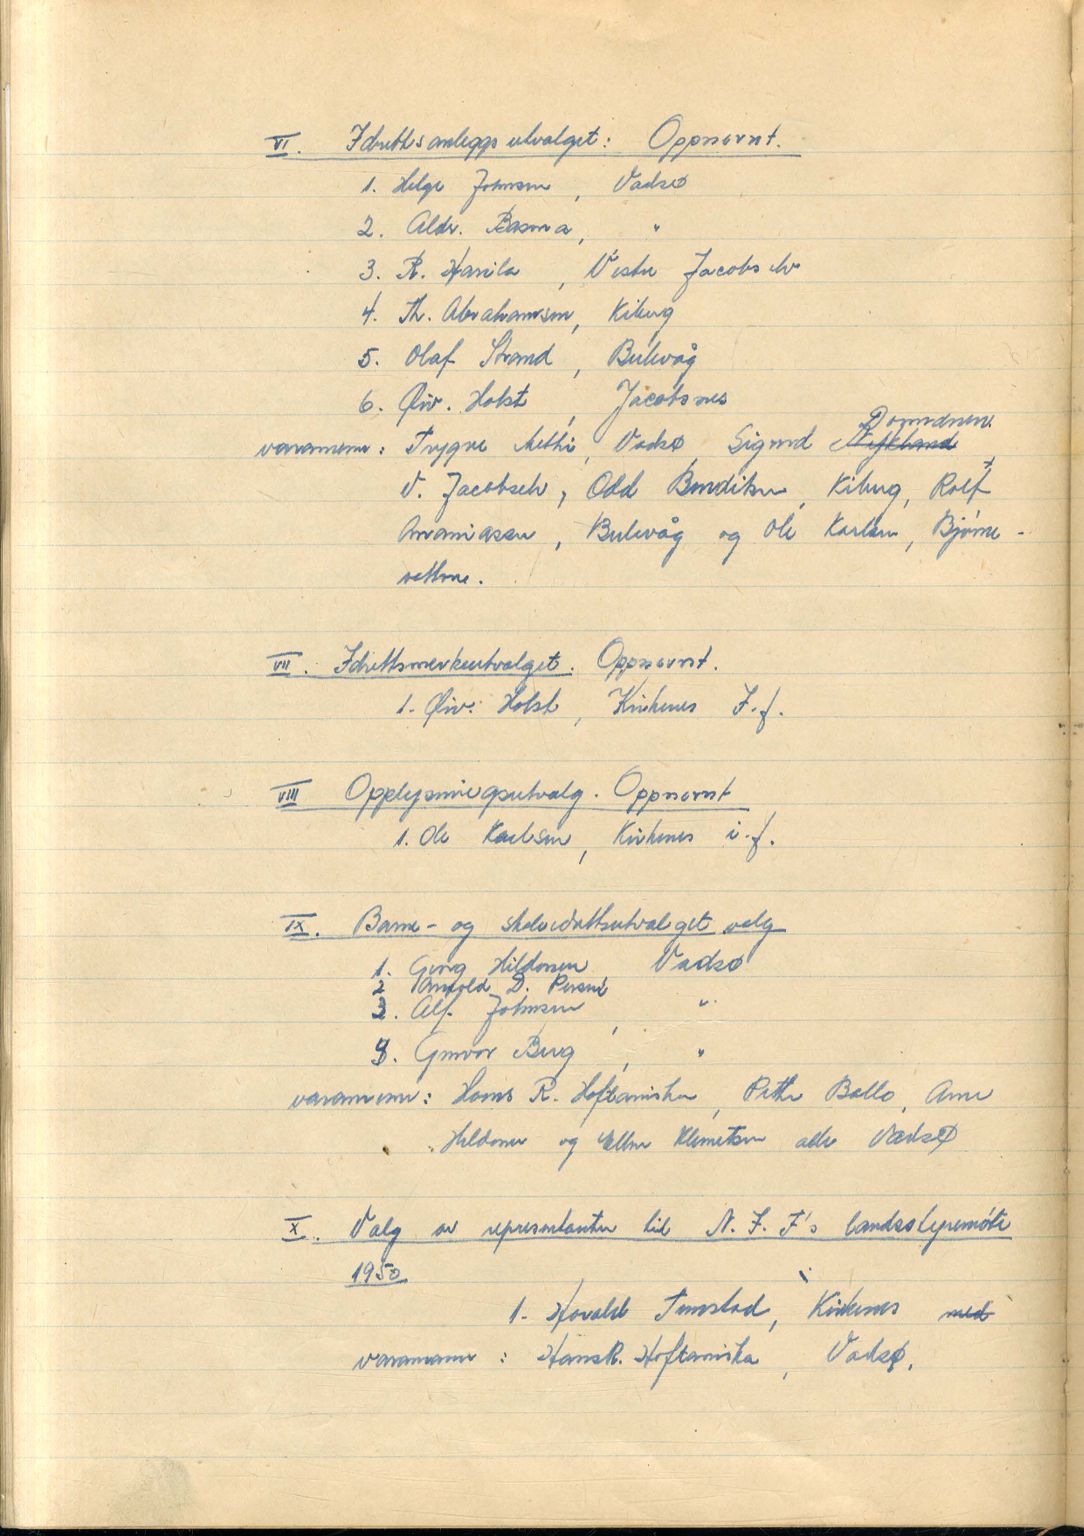 VI. Idrettsanleggsutvalget: Oppnevnt.
1. Helge Johnsen, Vadsø
2. Aldr. Basma, "
3. R. Harila, Vestre Jacobselv
4. Th. Abrahamsen, Kiberg
5. Olaf Strand, Bulevåg
6. Øiv. Holst, Jacobsnes
Domdnen.
varamenn: Trygve Methi, Vadsø, Sigurd
V. Jacobselv, Odd Bendiksen, Kiberg, Rolf
Ananiassen, Bulevåg og Ole Karlsen, Bjørne-
vettne.
VII. Idrettsmerkeutvalget. Oppnevnt.
1. Øiv. Holst, Kirkenes I.f.
VIII Opplysningsutvalg. Oppnevnt
1. Ole Karlsen, Kirkenes i.f.
IX. Barne- og skoleidrettsutvalget valg
1. Georg Hildonen, Vadsø
2 Arnfold D. Persen
3. Alf. Johnsen, "
4. Gunvor Berg, "
varamenn: Hans R. Hoftaniska, Petter Ballo, Arne
Hildonen og Ellen Klemetsen alle Vadsø
X. Valg av representanter til N.I.F's landsstyremöte
1950
1. Harald Tunstad, Kirkenes med
varamann: Hans R. Hoftaniska, Vadsø.